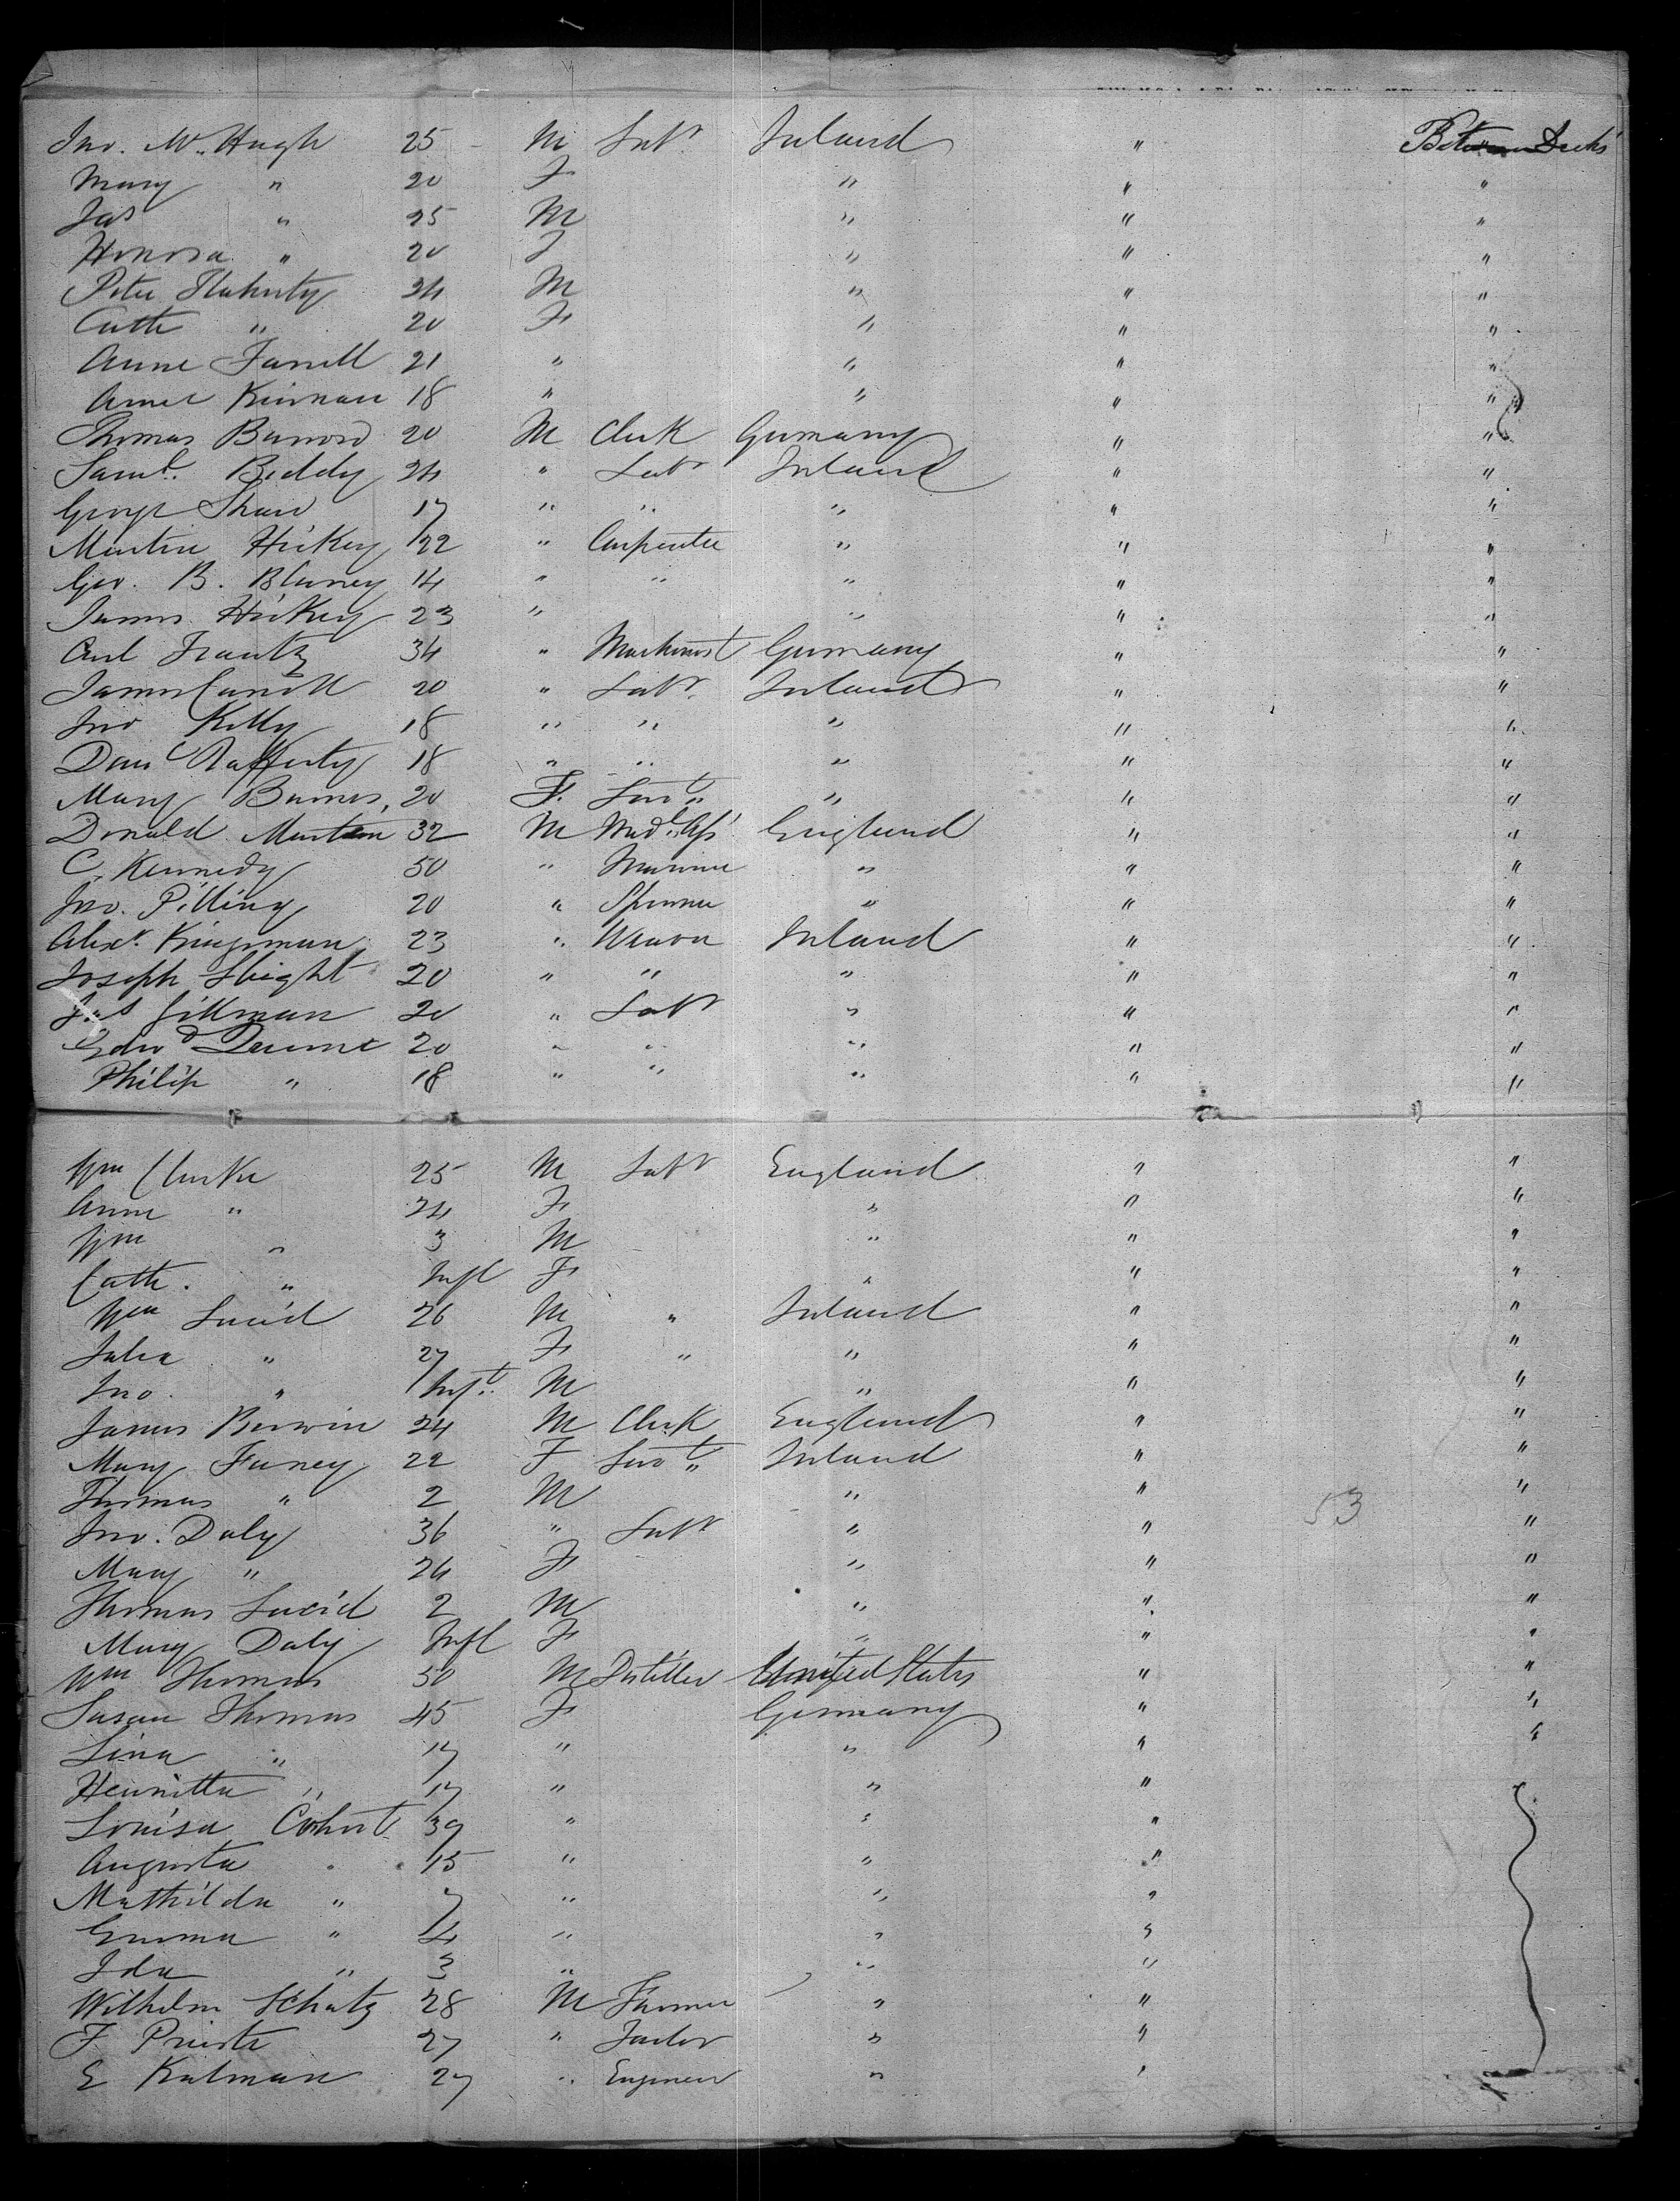 Jno. Mc. Hugh 25 M Labr Ireland " Between Decks
Mary " 20 F " " "
Jas " 25 M " " "
Honora " 20 F " " "
Peter Flaherty 24 M " " "
Cath " 20 F " " "
Anne Farrell 21 " " " "
Anne Kiernan 18 " " " "
Thomas 20 M Clerk Germany " "
Saml. Beddy 24 " Labr Ireland " "
George Shaw 17 " " " " "
Martin Hickey 22 " Carpenter " " "
Geo. B. Blaney 14 " " " " "
James Hickey 23 " " " "
Carl Frantz 34 " Machinist Germany " "
James Carroll 20 " Labr. Ireland " "
Jno Kelly 18 " " " " "
Danl Rafferty 18 " " " " "
Mary Barnes, 20 F. Servt " " "
Donald Martin 32 M England " "
C. Kennedy 50 " Mariner " " "
Jno. Pilling 20 " Spinner " " "
Alexr. Kingsman 23 " Weaver Ireland " "
Joseph Sleight 20 " " " " "
Jas Gillman 20 " Labr " " "
Edwd 20 " " " " "
Philip " 18 " " " " "
Wm Clarke 25 M Labr England " "
Anne " 24 F " " "
Wm " 3 M " " "
Cath. " Inft F " " "
Wm Lucid 26 M " Ireland " "
Julia " 27 F " " " "
Jno. " Inft. M " " "
James Berwin 24 M Clerk England " "
Mary Furey 22 F Servt " Ireland " "
Thomas " 2 M " " 53 "
Jno. Daly 36 " Labr " " "
Mary " 24 F " " "
Thomas Lucid 2 M " " "
Mary Daly Inft F " " "
Wm Thomas 50 M Distiller United States " "
Susan Thomas 45 F Germany " "
Lina " 17 " " " "
Henrietta " 17 " " "
Louisa Cohert 39 " " "
Augusta " 15 " " "
Mathilda " 7 " " "
Emma " 4 " " "
Ida " 3 " " "
Wilhelm Schatz 28 M Farmer " "
F Priester 27 " Tailor " "
E Kalman 27 " Engineer " "